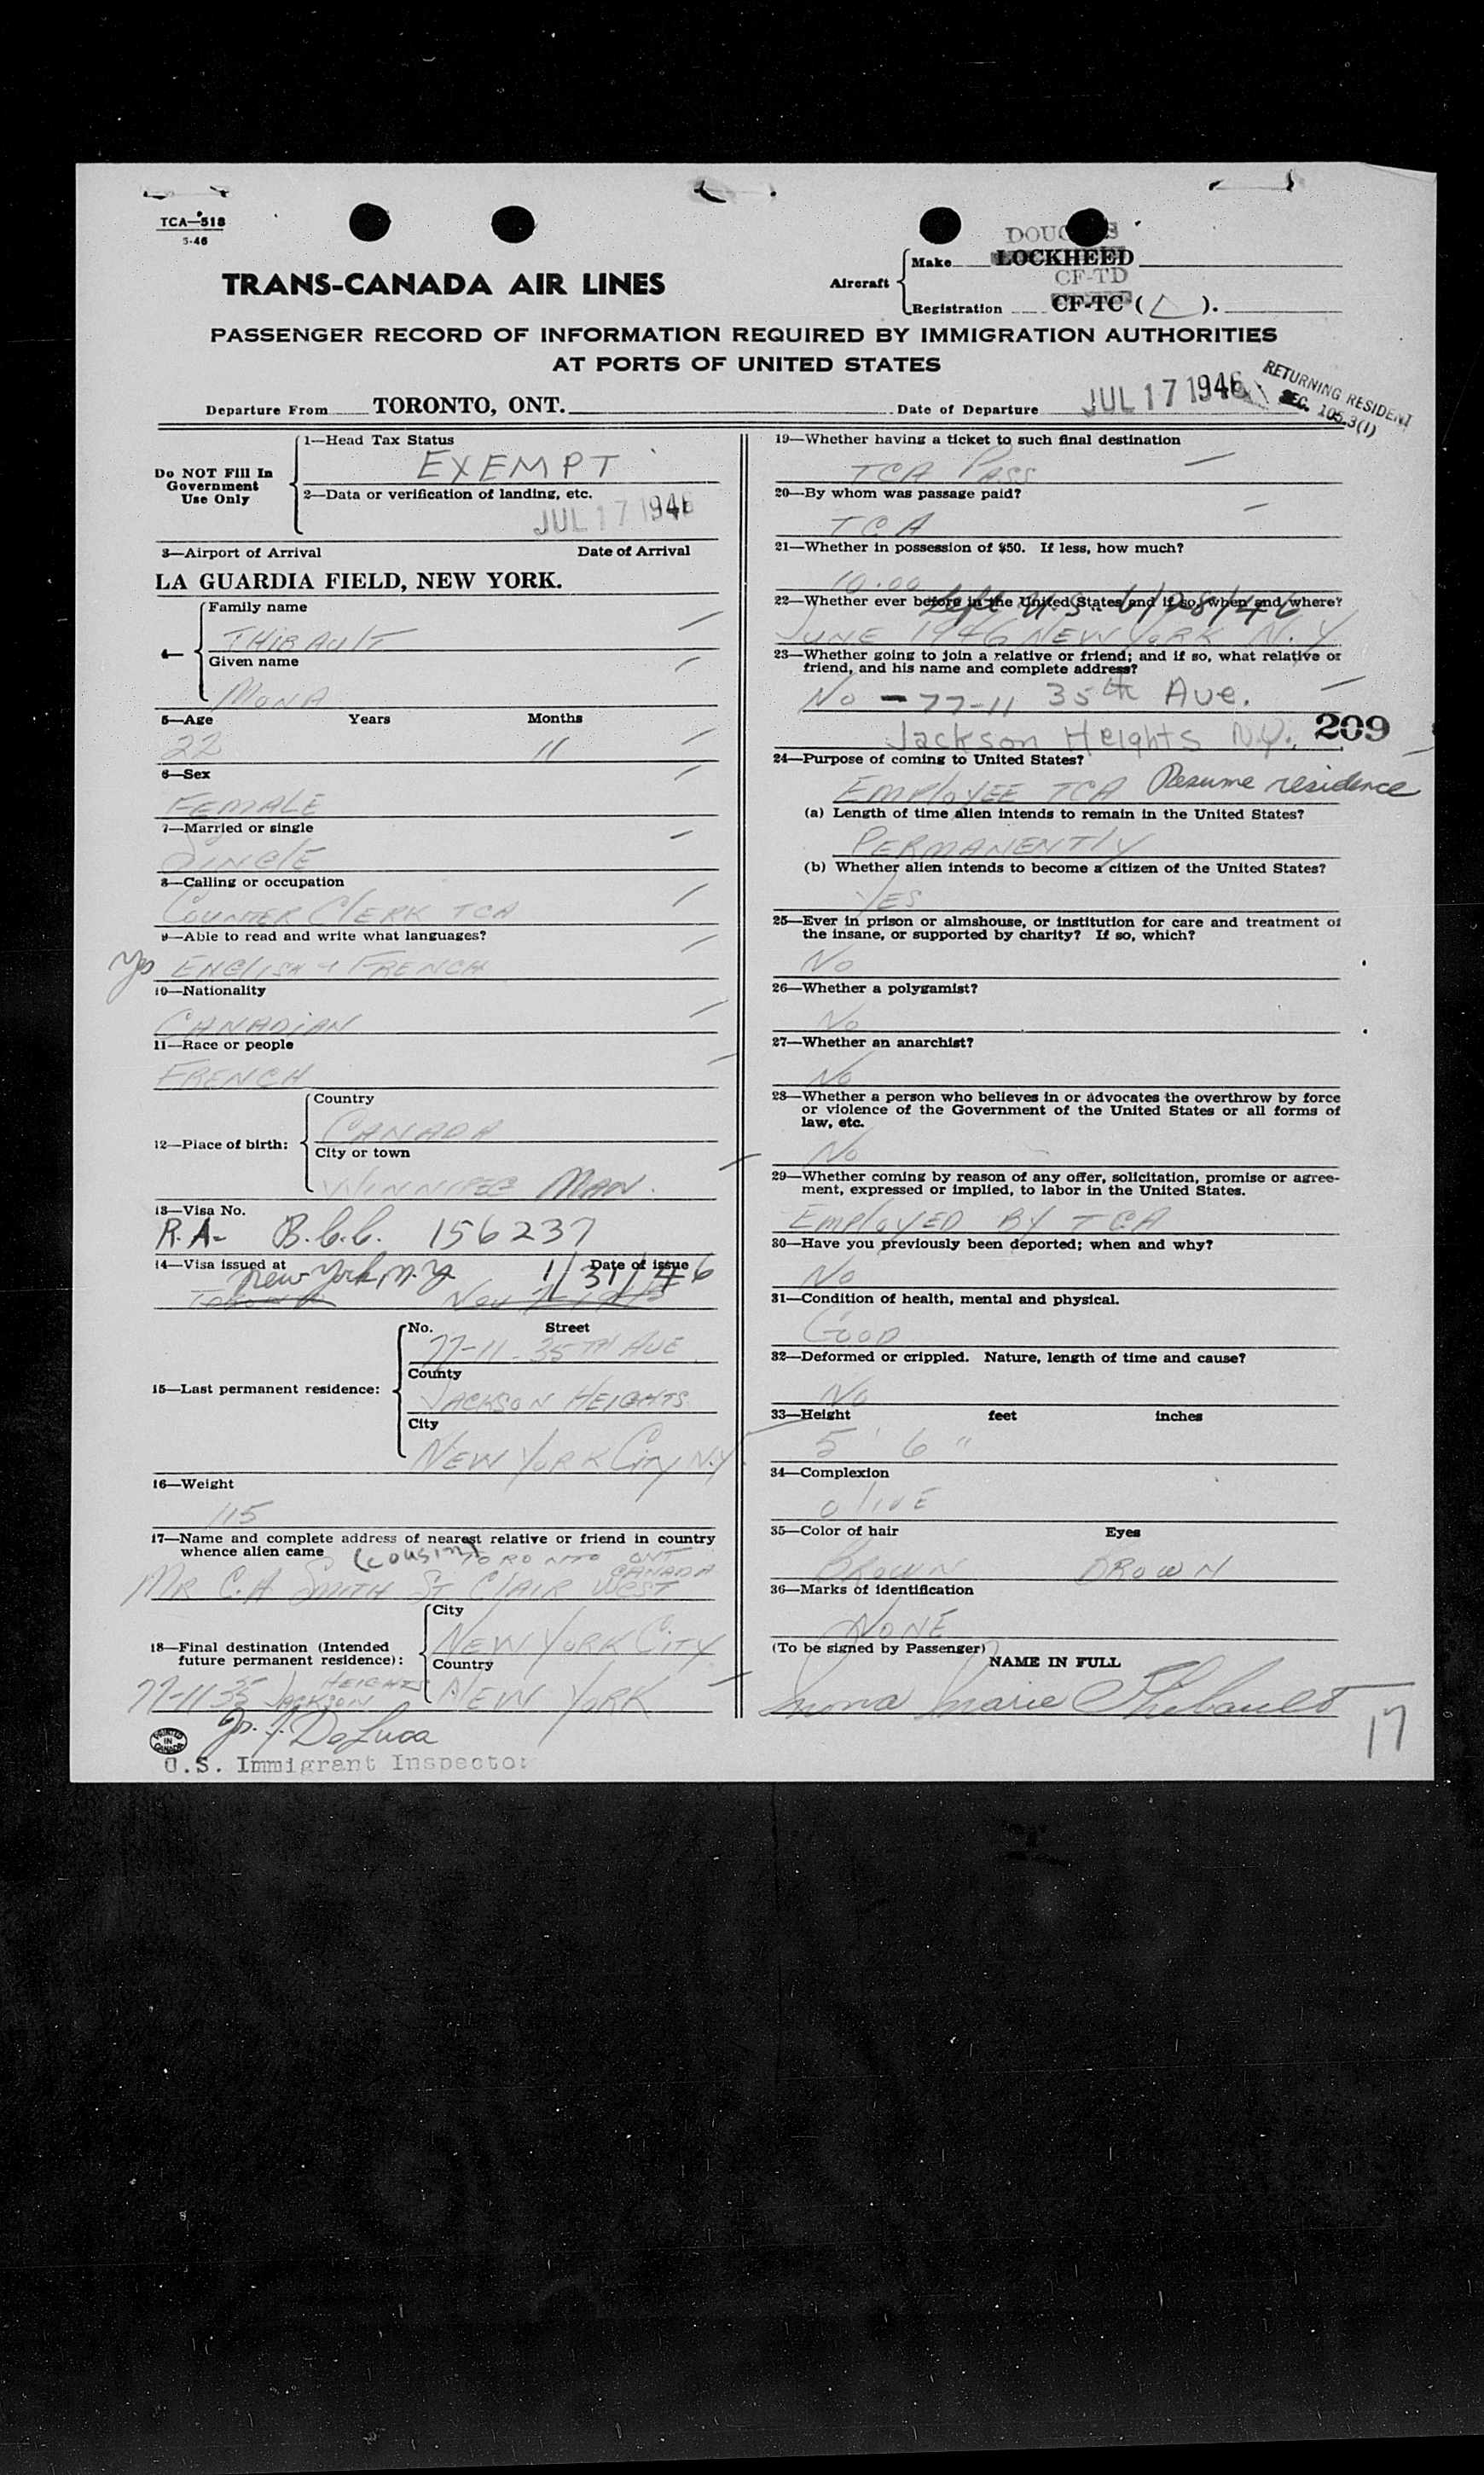 TCA—518
5-46
TRANS-CANADA AIR LINES
Aircraft
Make
LOCKHEED
CF-TD
Registration CF-TC ( ).
PASSENGER RECORD OF INFORMATION REQUIRED BY IMMIGRATION AUTHORITIES
AT PORTS OF UNITED STATES
RETURNING RESIDENT
SEC. 105.3(1)
Departure From TORONTO, ONT. Date of Departure JUL 17 1946
Do NOT Fill In
Government
Use Only
1—Head Tax Status
EXEMPT
2—Data or verification of landing, etc.
JUL 17 1946
3—Airport of Arrival Date of Arrival
LA GUARDIA FIELD, NEW YORK.
4—
Family name
THIBAULT
Given name
MONA
5—Age Years Months
22 11
6—Sex
FEMALE
7—Married or single
SINGLE
8—Calling or occupation
COUNTER CLERK TCA
9—Able to read and write what languages?
Yes ENGLISH + FRENCH
10—Nationality
CANADIAN
11—Race or people
FRENCH
12—Place of birth:
Country
CANADA
City or town
WINNIPEG MAN.
13—Visa No.
R.A- B.C.C. 156237
14—Visa issued at Date of issue
New York, N.Y. 1/31/46
15—Last permanent residence:
No. Street
77-11-35TH AVE
County
JACKSON HEIGHTS
City
NEW YORK CITY N.Y
16—Weight
115
17—Name and complete address of nearest relative or friend in country
whence alien came (cousin) TORONTO ONT
CANADA
MR C.A SMITH ST CLAIR WEST
18—Final destination (Intended
future permanent residence):
City
NEW YORK CITY
Country
NEW YORK
HEIGHTS
77-11 35 JACKSON
DeLuca
U.S. Immigrant Inspector
PRINTED
IN
CANADA
19—Whether having a ticket to such final destination
TCA PASS
20—By whom was passage paid?
TCA
21—Whether in possession of $50. If less, how much?
10.00
22—Whether ever before in the United States and if so, when and where?
Left U.S. 6/28/46
JUNE 1946 NEW YORK N.Y
23—Whether going to join a relative or friend; and if so, what relative or
friend, and his name and complete address?
NO - 77-11 35th Ave.
Jackson Heights N.Y.
209
24—Purpose of coming to United States?
EMPLOYEE TCA Resume residence
(a) Length of time alien intends to remain in the United States?
PERMANENTLY
(b) Whether alien intends to become a citizen of the United States?
YES
25—Ever in prison or almshouse, or institution for care and treatment of
the insane, or supported by charity? If so, which?
NO
26—Whether a polygamist?
NO
27—Whether an anarchist?
NO
28—Whether a person who believes in or advocates the overthrow by force
or violence of the Government of the United States or all forms of
law, etc.
NO
29—Whether coming by reason of any offer, solicitation, promise or agree-
ment, expressed or implied, to labor in the United States.
EMPLOYED BY TCA
30—Have you previously been deported; when and why?
NO
31—Condition of health, mental and physical.
GOOD
32—Deformed or crippled. Nature, length of time and cause?
NO
33—Height feet inches
5' 6"
34—Complexion
OLIVE
35—Color of hair Eyes
BROWN BROWN
36—Marks of identification
NONE
(To be signed by Passenger)
NAME IN FULL
Mona Marie Thibault
17